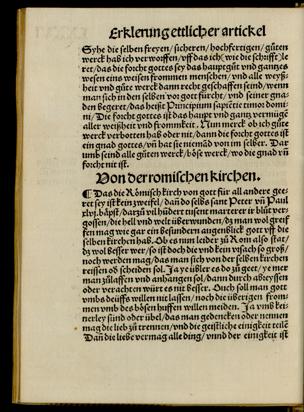 Erklerung ettlicher artickel
Syhe die selben freyen/ sicheren/ hochfertigen/ gůten
werck hab ich verworffen/ vff das ich (wie die schrifft) le
ret/ das die forcht gottes sey das hauptgůt vnd gantzes
wesen eins weisen frommen menschen/ vnd alle weyß⸗
heit vnd gůte werck dann recht geschaffen seind/ wenn
man sich in den selben vor got fürcht/ vnd seiner gna⸗
den begeret/ das heißt Principium sapiẽtie timor domi
ni/ Die forcht gottes ist das haupt vnd gantz vermögẽ
aller weißheit vnd frommkeit. Nun merck ob ich gůte
werck verbotten hab oder nit/ dann die forcht gottes ist
ein gnad gottes/ vñ hat sie niemãd von im selber. Dar
umb seind alle gůten werck/ böse werck/ wo die gnad vñ
forcht nit ist.
Von der romischen kirchen.
¶ Das die Römisch kirch von gott für all andere gee⸗
ret sey ist kein zweifel/ dañ do selbs sant Peter vñ Paul
xlvj. bäpst/ darzů vil hůdert tusent martterer ir blůt ver⸗
gossen/ die hell vnd welt überwunden/ dz man wol greif
fen mag wie gar ein besundern augenblick gott vff die
selben kirchen hab. Ob es nun leider zů Rom also stat/
dz wol besser wer/ so ist doch die vnd kein vrsach so groß/
noch werden mag/ das man sich von der selben kirchen
reissen oder scheiden sol. Ja ye übler es do zů geet/ ye mer
man zůlauffen vnd anhangen sol/ dann durch abreyssen
oder verachten würt es nit besser. Ouch soll man gott
vmbs deüffs willen nit lassen/ noch die überigen from⸗
men vmb des bösen huffen willen meiden. Ja vmb kei⸗
nerley sünd oder übel/ das man gedencken oder nennen
mag die lieb zů trennen/ vnd die geistliche einigkeit teilẽ
Dañ die liebe vermag alle ding/ vnnd der einigkeit ist